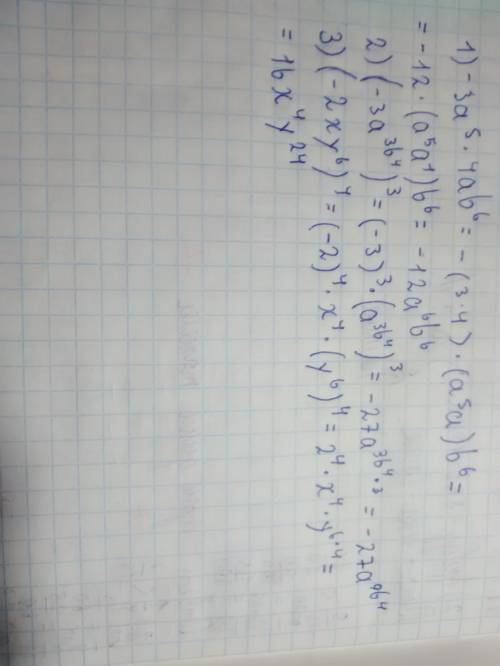 1) -3a⁵ · 4ab⁶ = -(3·4) · (a⁵a)b⁶ =
= -12 · (a⁵a¹)b⁶ = -12a⁶b⁶
2) (-3a^{3b⁴})³ = (-3)³ · (a^{3b⁴})³ = -27a^{3b⁴·3} = -27a^{9b⁴}
3) (-2xy⁶)⁴ = (-2)⁴ · x⁴ · (y⁶)⁴ = 2⁴ · x⁴ · y^{6·4} =
= 16x⁴y²⁴